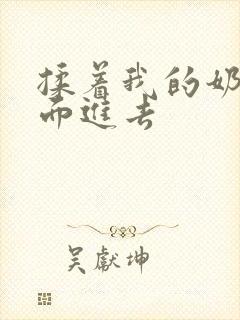 揉着我的奶
而进去
吴献坤